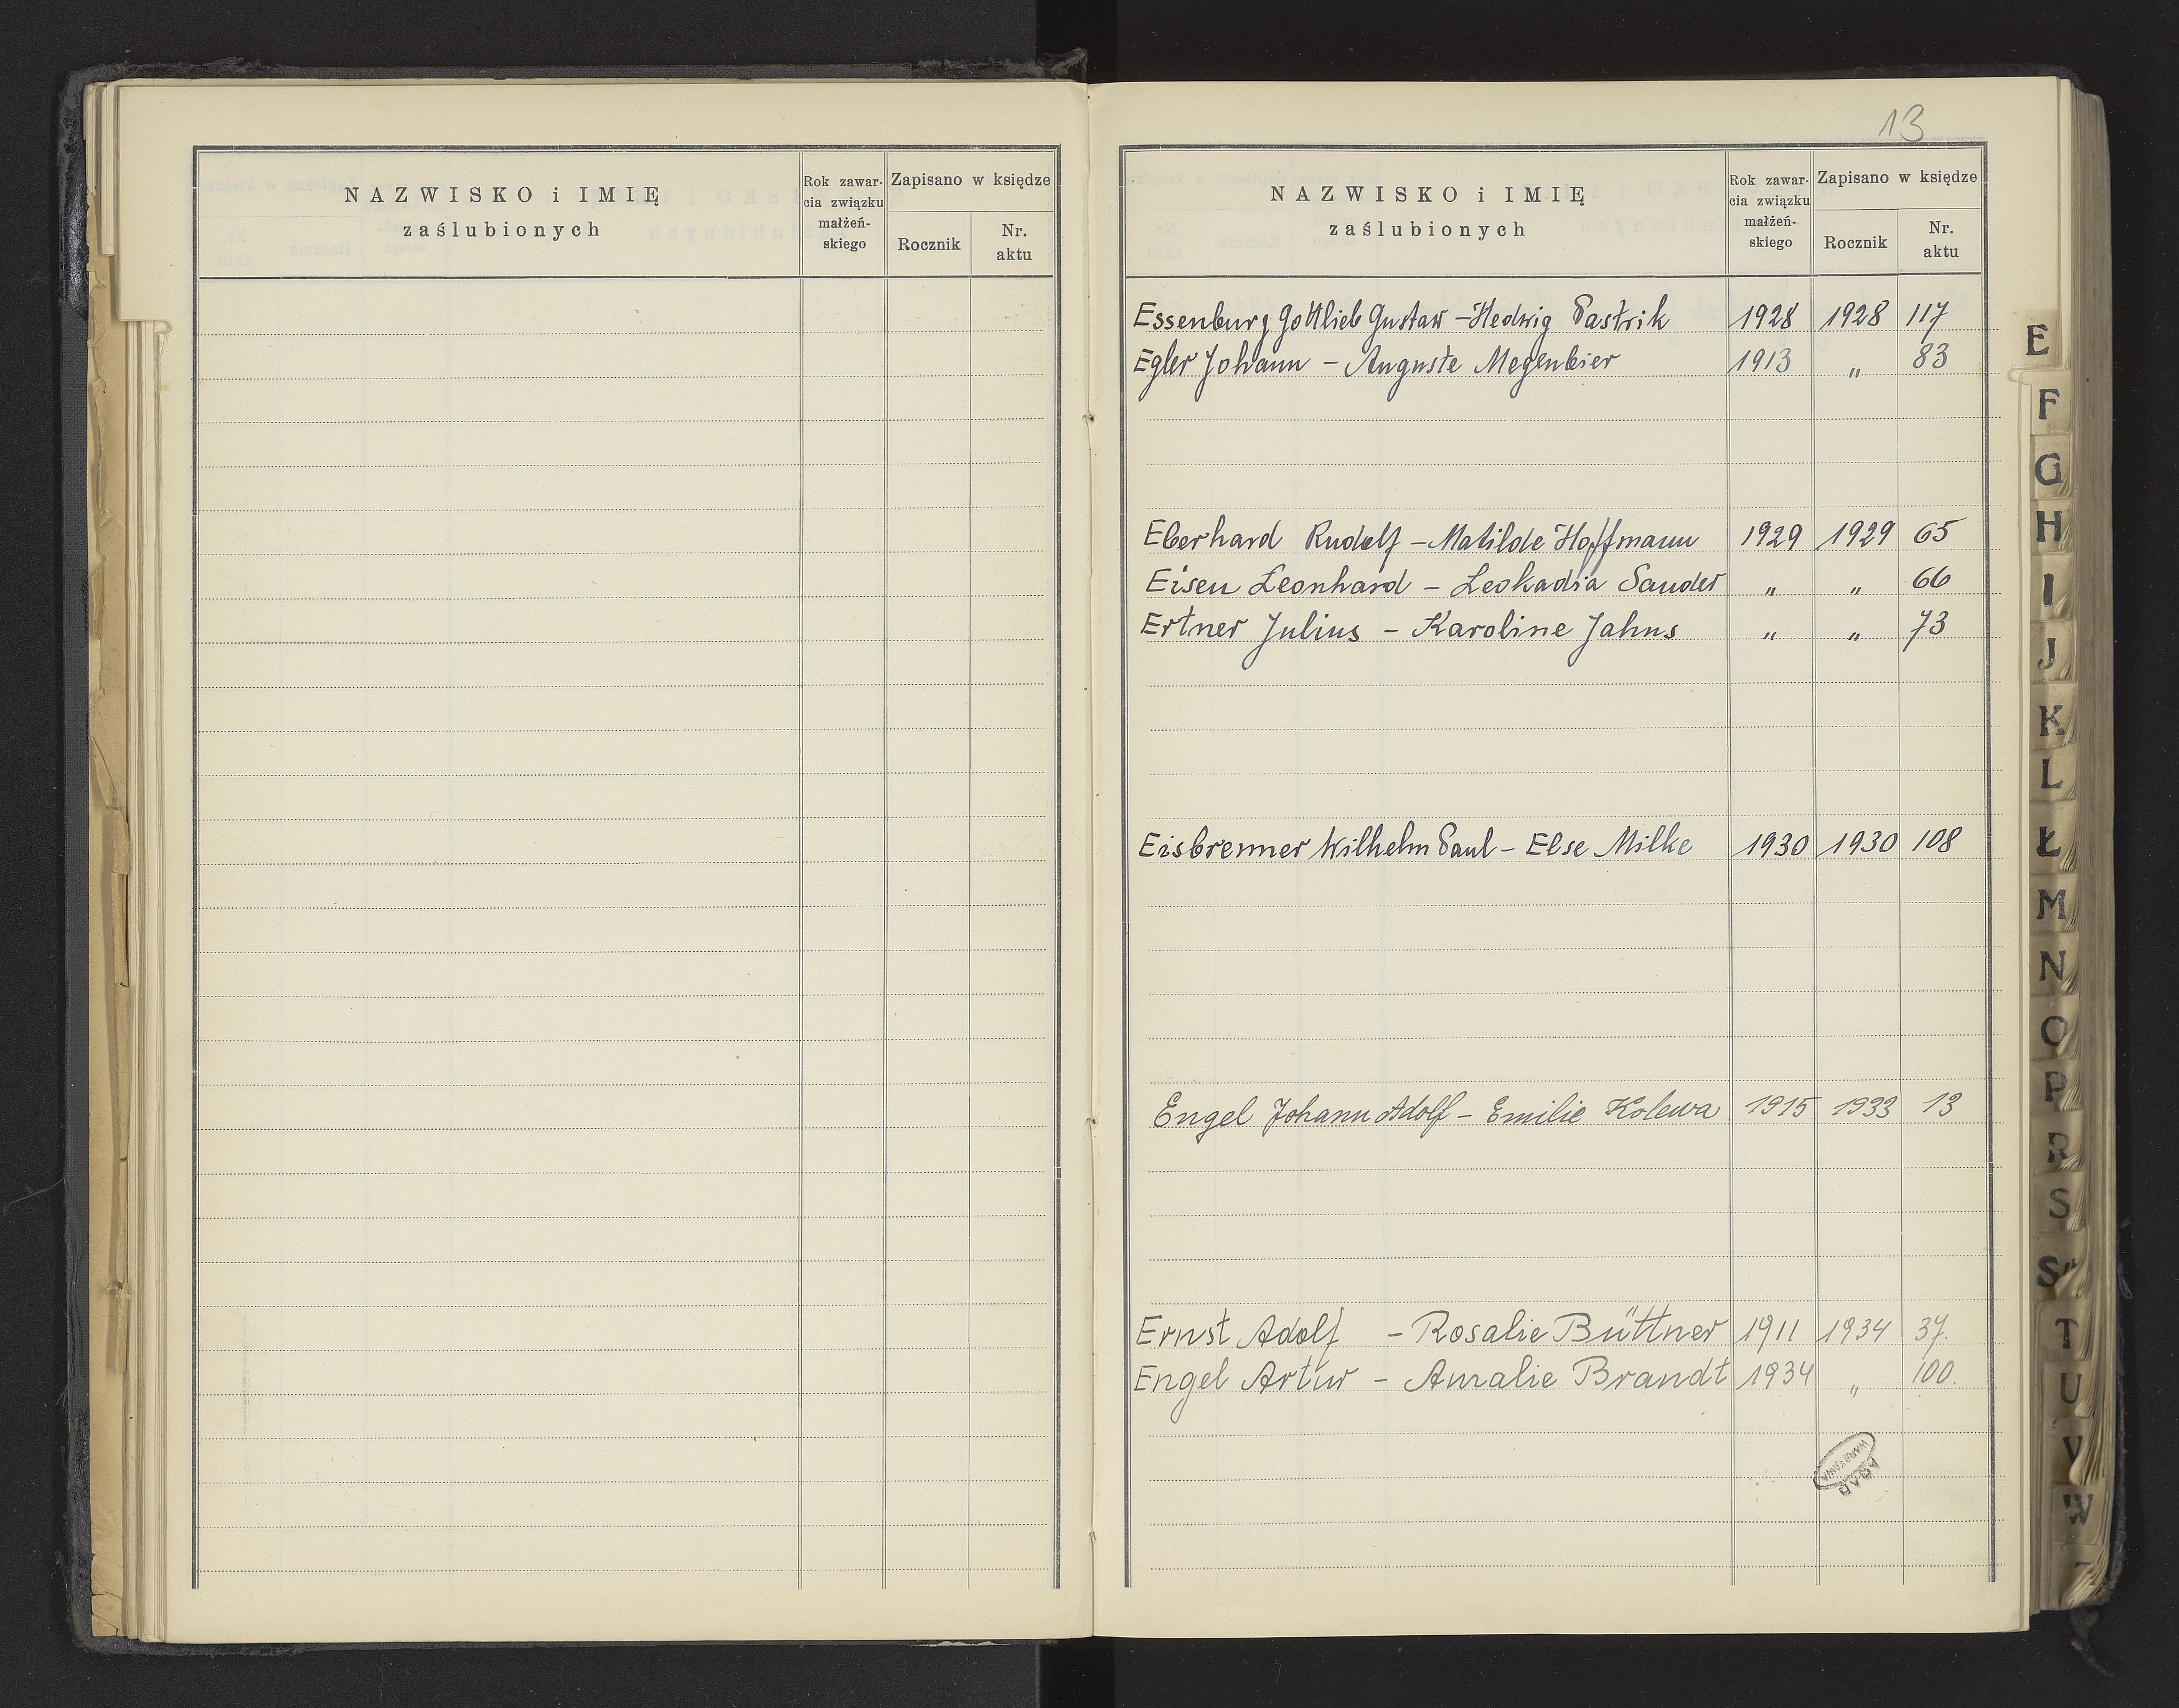 NAZWISKO i IMIĘ
zaślubionych
Rok zawar-
cia związku
małżeń-
skiego
Zapisano w księdze
Rocznik
Nr.
aktu
13
NAZWISKO i IMIĘ
zaślubionych
Rok zawar-
cia związku
małżeń-
skiego
Zapisano w księdze
Rocznik
Nr.
aktu
Essenburg Gottlieb Gustaw - Hedwig Pastrik 1928 1928 117
Egler Johann - Auguste Megenbier 1913 " 83
Eberhard Rudolf - Matilde Hoffmann 1929 1929 65
Eisen Leonhard - Leokadia Sander " " 66
Ertner Julius - Karoline Jahns " " 73
Eisbrenner Wilhelm Paul - Else Milke 1930 1930 108
Engel Johann Adolf - Emilie Kolewa 1915 1933 13
Ernst Adolf - Rosalie Büttner 1911 1934 37.
Engel Artur - Amalie Brandt 1934 " 100.
AGAD
WARSZAWA
E
F
G
H
I
J
K
L
Ł
M
N
O
P
R
S
Ś
T
U
V
W
Z